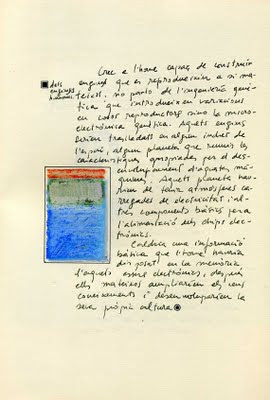 Crec a l'home capaç de construir
dels
enginys
humans.
enginys que es reprodueixin a sí ma-
teixos, no parlo de l'enginyeria gené-
tica que introdueix en variacions
en codos reproductors sinó la micro-
electrònica genética. Aquets enginys
serien traslladats en algun indret de
l'espai, algun planeta que reuneixi les
característiques apropiades per al des-
envolupament d'aquets, má-
quines, aquets planeta hau-
rien de tenir atmosferes ca-
rregades de electricitat i al-
tres components bàsics para
l'alimentació dels chips elec-
trónics.
Caldria una informació
bàtica que l'home hauria
disposat en la memòria
d'aquets essers electrónics, després
ells mateixos ampliarien els seus
coneixements i desenvoluparien la
seva própia cultura